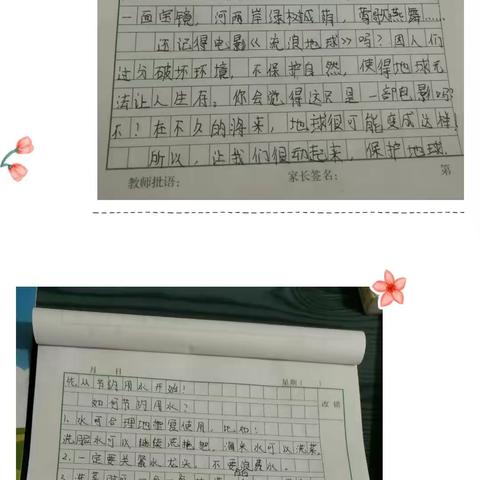 一面宝镜，河两岸绿树成荫，莺歌燕舞……
还记得电影《流浪地球》吗？因人们
过分破坏环境，不保护自然，使得地球无
法让人生存。你会觉得这只是一部电影吗？
不！在不久的将来，地球很可能变成这样！
所以，让我们行动起来，保护地球，
教师批语： 家长签名： 第
月 日 星期（ ）
先从节约用水开始！ 改错
如何节约用水？
1、水可合理地重复使用，比如：
洗脸水可以接续洗拖把，淘米水可以洗菜。
2、一定要关紧水龙头，不要浪费水。